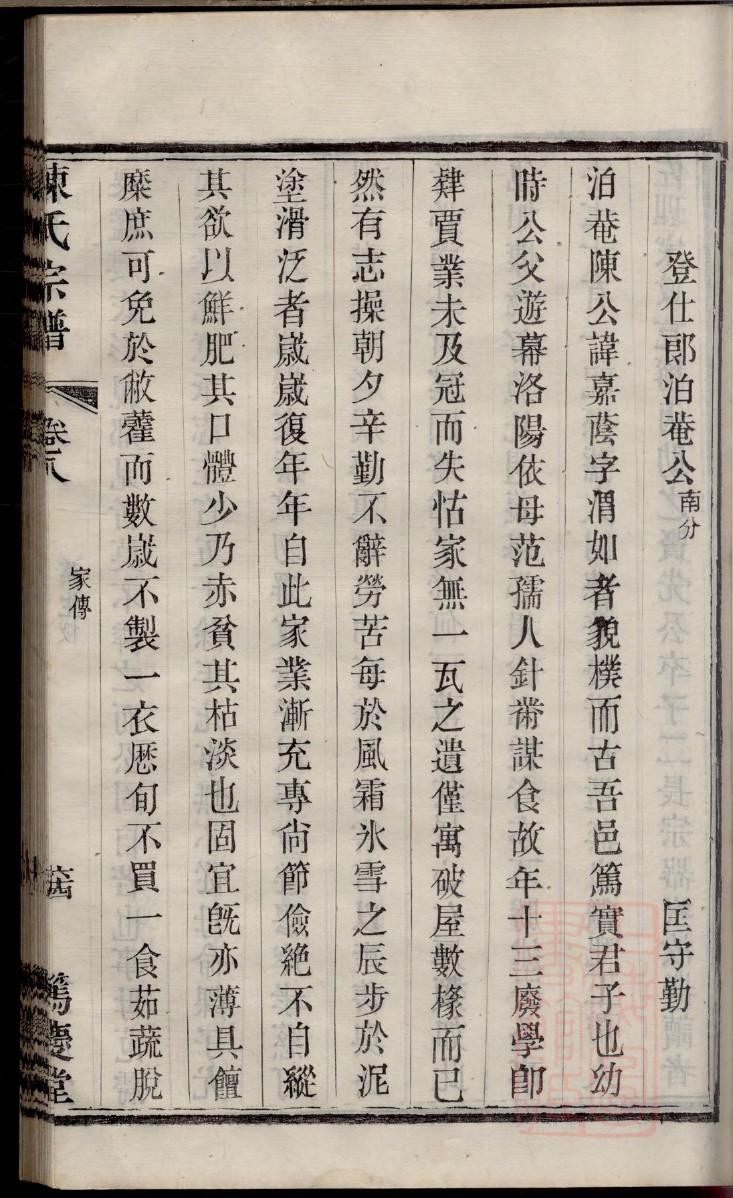 登仕郎泊菴公 南分 匡守勤
泊菴陳公諱嘉蔭字渭如者貌樸而古吾邑篤實君子也幼
時公父遊幕洛陽依母范孺人針黹謀食故年十三廢學卽
肄賈業未及冠而失怙家無一瓦之遺僅寓破屋數椽而已
然有志操朝夕辛勤不辭勞苦每於風霜氷雪之辰步於泥
塗滑泛者歲歲復年年自此家業漸充專尙節儉絶不自縱
其欲以鮮肥其口體少乃赤貧其枯淡也固宜旣亦薄具饘
糜庶可免於敝虀而數歲不製一衣厯旬不買一食茹蔬脫
陳氏宗譜 卷八 家傳 篤慶堂